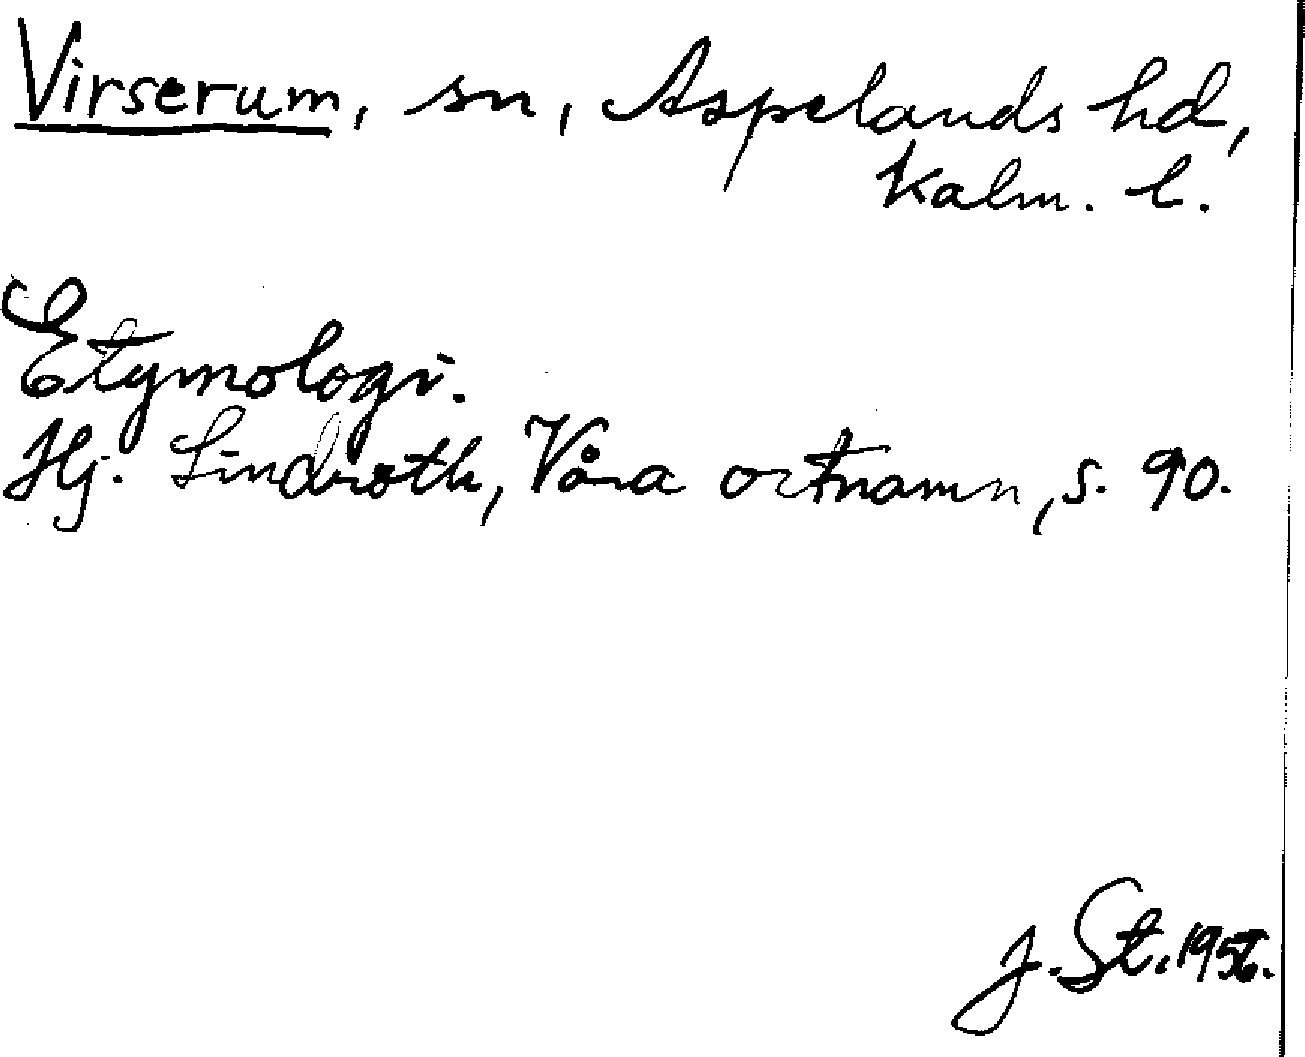 Virserum, sn, Aspelands hd,
Kalm. l.
Etymologi.
Hj. Lindroth, Våra ortnamn, s. 90.
J. St. 1956.